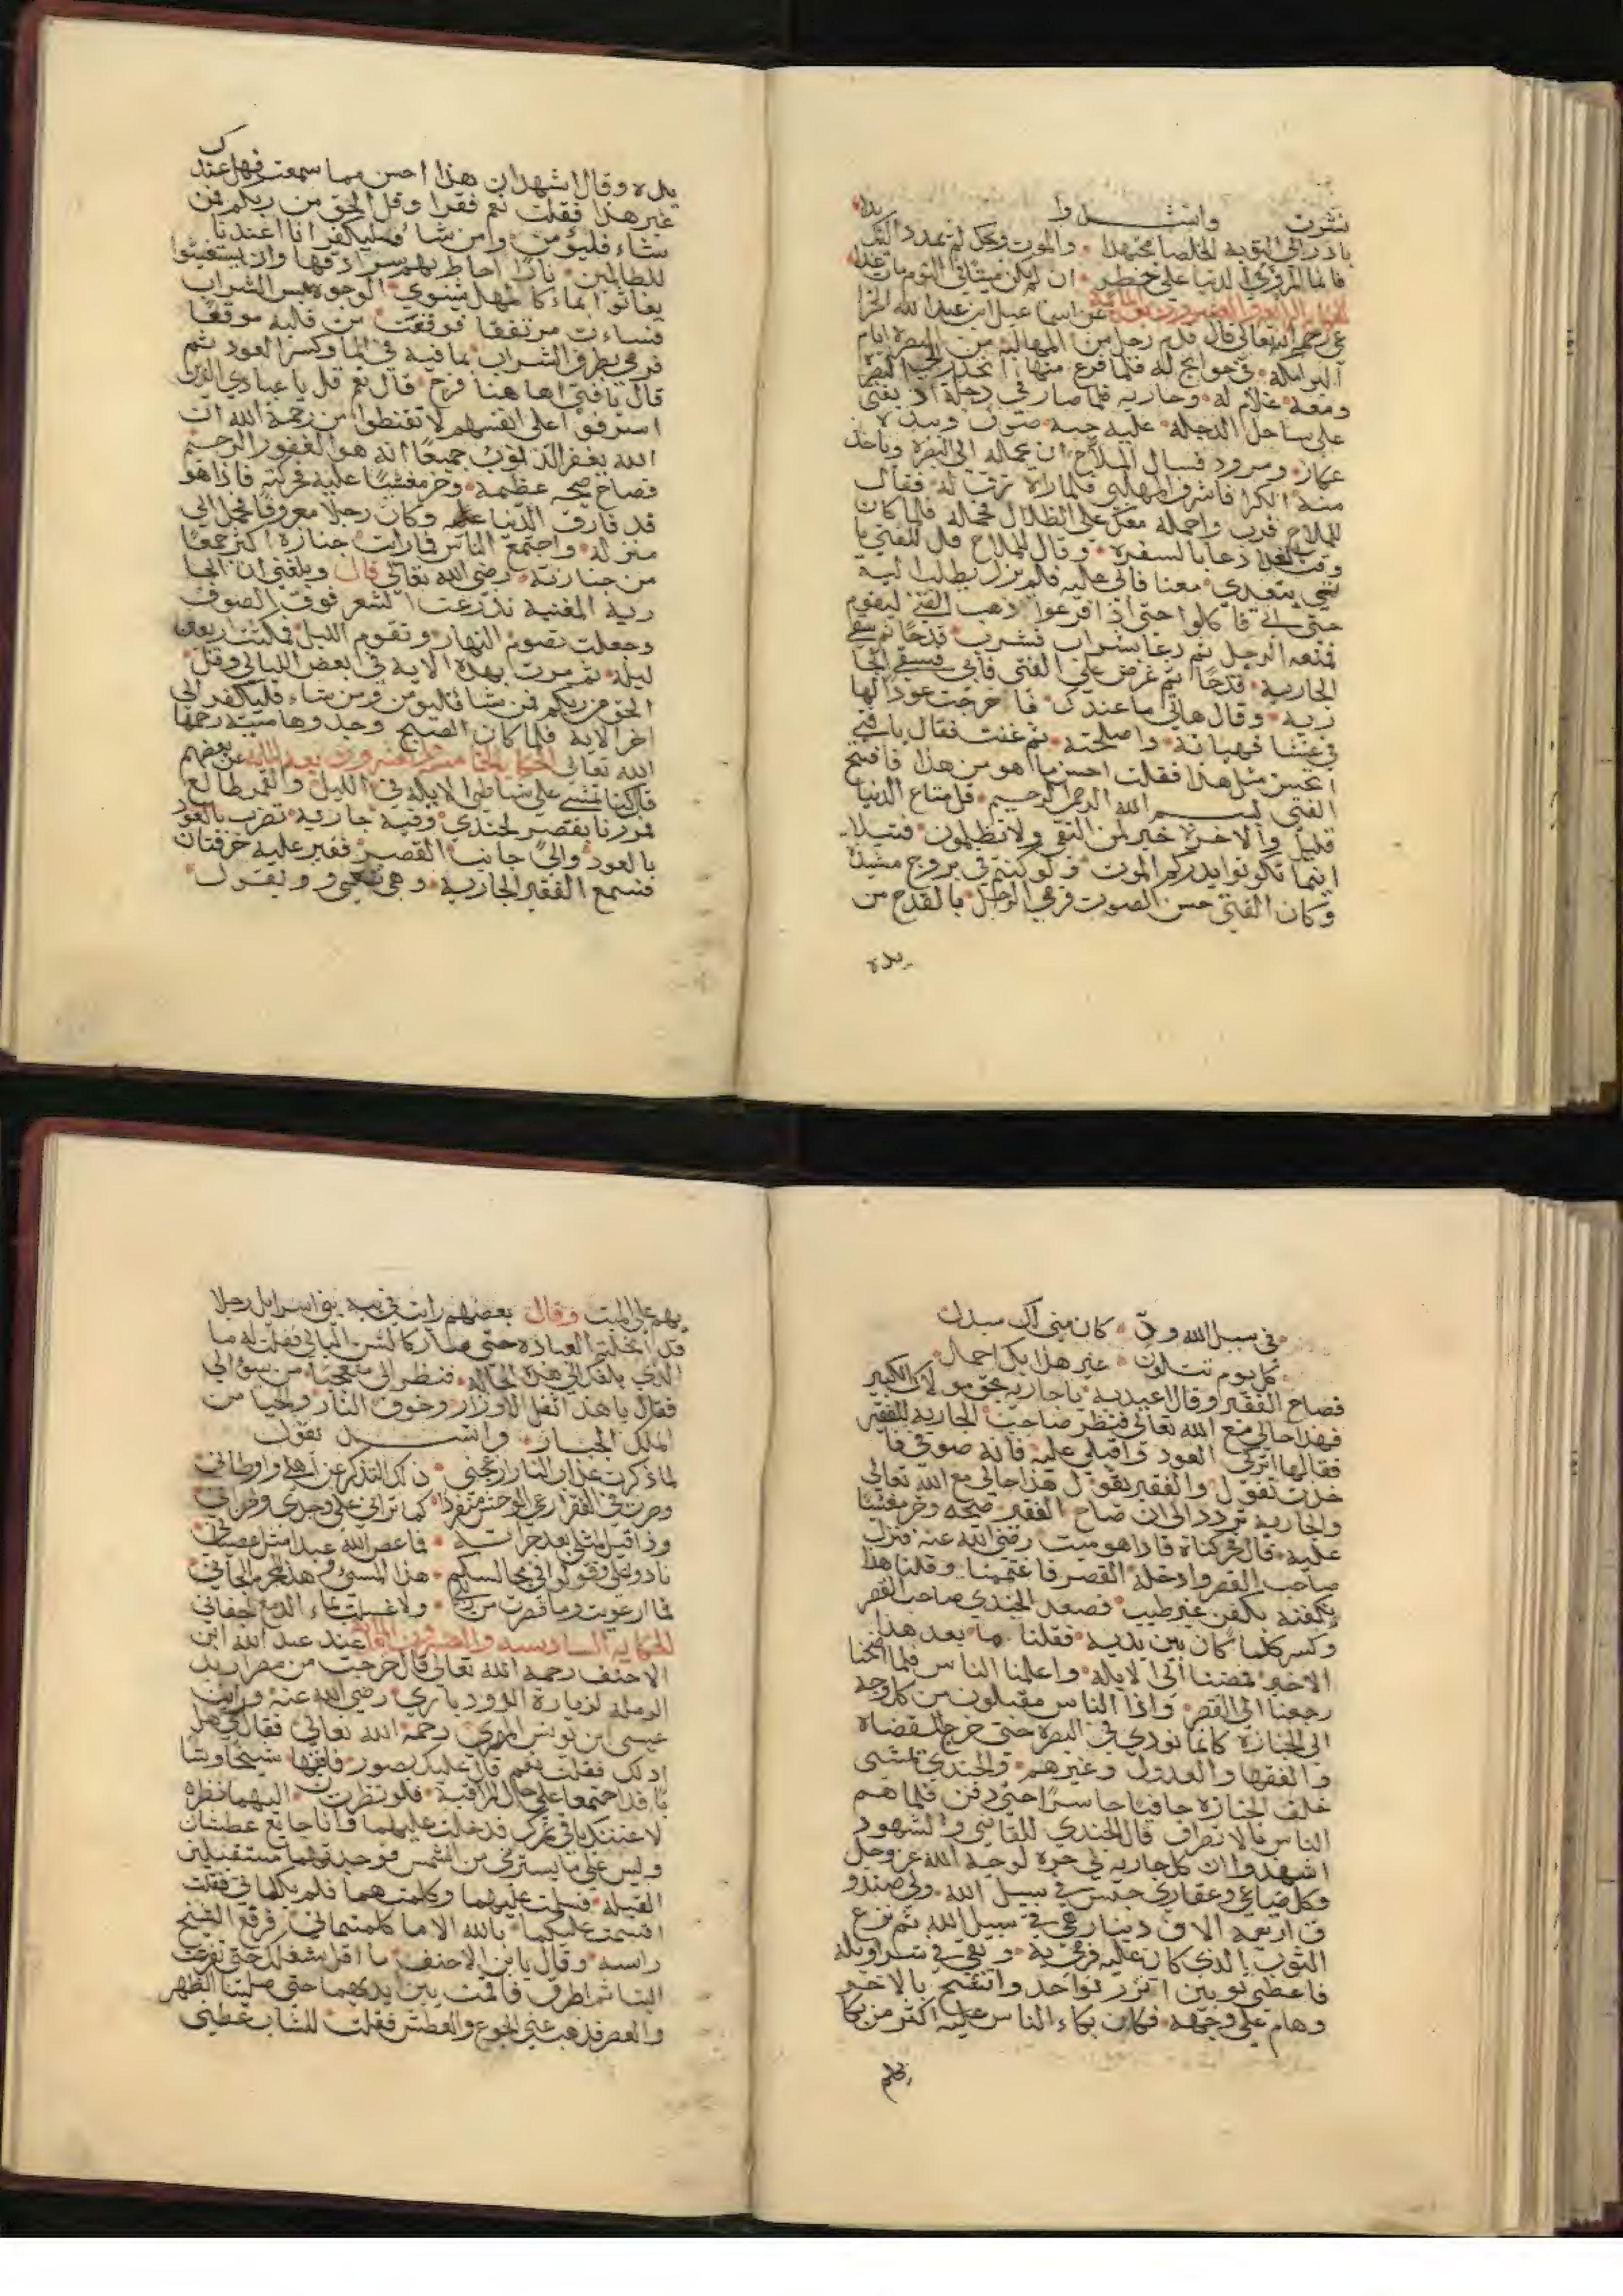 نثرت وانشدوا
بادر الى التوبة الخلصا مجتهدا والموت ويحك لم يمدد اليك يدا
فانما المرؤ في الدنيا على خطر ان لم يكن ميتا في اليوم مات غدا
الحكاية الرابعة والعشرون بعد المائة عن اسماعيل ابن عبد الله الخزا
عي رحمه الله تعالى قال قدم رجل من المهالبة من البصرة ايام
البرامكة في حوايج له فلما فرغ منها انحدر الى البصرة
ومعه غلام له وجارية فلما صار في دجلة اذ بفتى
على ساحل الدجلة عليه جبة صوف وبيده
عكاز ومزود فسال الملاح ان يحمله الى البصرة وياخذ
منه الكرا فاشرف المهلبي فلما راه رق له فقال
للملاح قرب واحمله معك على الظلال فحمله فلما كان
وقت الغدا دعا بالسفرة وقال للملاح قل للفتى يا
تي يتغدى معنا فابى عليه فلم يزل يطلب اليه
حتى اتى فاكلوا حتى اذا فرغوا ذهب الفتى ليقوم
فمنعه الرجل ثم دعا بشراب فشرب قدحا ثم سقى
الجارية قدحا ثم عرض على الفتى فابى فسقى الجا
رية وقال هاتي ما عندك فاخرجت عودا لها
في غشا فهياته واصلحته ثم غنت فقال يا فتى
اتحسن مثل هذا فقلت احسن ما هو من هذا فافتتح
الفتى بسم الله الرحمن الرحيم قل متاع الدنيا
قليل والاخرة خير لمن اتقى ولا تظلمون فتيلا
اينما تكونوا يدرككم الموت ولو كنتم في بروج مشيدة
وكان الفتى حسن الصوت فرمى الرجل بالقدح من
يده
يده وقال اشهد ان هذا احسن مما سمعت فهل عندك
غير هذا فقلت نعم فقرا وقل الحق من ربكم فمن
شاء فليؤمن ومن شا فليكفر انا اعتدنا
للظالمين نارا احاط بهم سرادقها وان يستغيثوا
يغاثوا بماء كالمهل يشوي الوجوه بئس الشراب
وساءت مرتفقا فوقعت من قلبه موقعا
فرمى بظرف الشراب بما فيه في الما وكسر العود ثم
قال يا فتى اها هنا فرج قال نعم قل يا عبادي الذين
اسرفوا على انفسهم لا تقنطوا من رحمة الله ان
الله يغفر الذنوب جميعا انه هو الغفور الرحيم
فصاح صيحة عظيمة وخر مغشيا عليه فحركته فاذا هو
قد فارق الدنيا وكان رجلا معروفا فحمل الى
منزله واجتمع الناس فما رايت جنازة اكثر جمعا
من جنازته رضي الله تعالى قال وبلغني ان الجا
رية المغنية تدرعت الشعر فوق الصوف
وجعلت تصوم النهار وتقوم الليل فمكثت اربعين
ليلة ثم مرت بهذه الاية في بعض الليالي وقل
الحق من ربكم فمن شا فليؤمن ومن شاء فليكفر الى
اخر الاية فلما كان الصبح وجدوها ميتة رحمها
الله تعالى الحكاية الخامسة والعشرون بعد المائة عن بعضهم
قال كنا نمشي على شاطئ الابلة في الليل والقمر طالع
فمررنا بقصر لجندي وفيه جارية تضرب بالعود
بالعود والى جانب القصر فقير عليه خرقتان
فسمع الفقير الجارية وهي تغني وتقول
في سبيل الله ود كان مني لك يبذل
كل يوم تتلون غير هذا بك اجمل
فصاح الفقير وقال اعيديه يا جارية بحق مولاك الكبير
فهذا حالي مع الله تعالى فنظر صاحب الجارية للفقير
فقال لها اتركي العود واقبلي عليه فانه صوفي فا
خذت تقول والفقير يقول هذا حالي مع الله تعالى
والجارية تردد الى ان صاح الفقير صيحة وخر مغشيا
عليه قال فحركناه فاذا هو ميت رضي الله عنه فنزل
صاحب القصر وادخله القصر فاغتممنا وقلنا هذا
يكفنه بكفن غير طيب فصعد الجندي صاحب القصر
وكسر كلما كان بين يديه فقلنا ما بعد هذا
الاخير فمضينا الى الابلة واعلمنا الناس فلما اصبحنا
رجعنا الى القصر واذا الناس مقبلون من كل وجه
الى الجنازة كانما نودي في البصرة حتى خرج القضاة
والفقها والعدول وغيرهم والجندي يمشي
خلف الجنازة حافيا حاسرا حتى دفن فلما هم
الناس بالانصراف قال الجندي للقاضي والشهود
اشهدوا ان كل جارية لي حرة لوجه الله عز وجل
وكل ضياعي وعقاري حبس في سبيل الله ولي صندو
ق اربعة الاف دينار هي في سبيل الله ثم نزع
الثوب الذي كان عليه فرمى به وبقي في سراويله
فاعطي ثوبين اتزر بواحد واتشح بالاخر
وهام على وجهه فكان بكاء الناس عليه اكثر من بكا
بهم على الميت وقال بعضهم رايت في تيه بني اسرائيل رجلا
قد انحلته العبادة حتى صار كالشن البالي فقلت له ما
الذي بلغك الى هذه الحالة فنظر الي متعجبا من سؤالي
فقال يا هذا ثقل الاوزار وخوف النار والحيا من
الملك الجبار وانشد يقول
لما ذكرت عذاب النار ازعجني ذاك التذكر عن اهلي واوطاني
وصرت في القفر ارعى الوحش منفردا كما تراني على وجدي واحزاني
وذا قليل لمثلي بعد جراته فما عصى الله عبد مثل عصياني
نادوا علي وقولوا في مجالسكم هذا المسئ وهذا المجرم الجاني
فما ارعويت وما قصرت من زللي ولا غسلت بماء الدمع اجفاني
الحكاية السادسة والعشرون بعد المائة عن عبد الله ابن
الاحنف رحمه الله تعالى قال خرجت من مصر اريد
الرملة لزيارة الروودباري رضي الله عنه وراني
عيسى ابن يونس المصري رحمه الله تعالى فقال لي هل
ادلك فقلت نعم قال عليك بصور فان فيها شيخا وشا
با قد اجتمعا على حال المراقبة فلو نظرت اليهما نظرة
لاغنتك باقي عمرك فدخلت عليهما وانا جايع عطشان
وليس علي ما يسترني من الشمس فوجدتهما مستقبلين
القبلة فسلمت عليهما وكلمتهما فلم يكلماني فقلت
اقسمت عليكما بالله الا ما كلمتماني فرفع الشيخ
راسه وقال يا بن الاحنف ما اقل شغلك حتى تفرغت
الينا ثم اطرق فاقمت بين ايديهما حتى صلينا الظهر
والعصر فذهب عني الجوع والعطش فقلت للشاب عظني